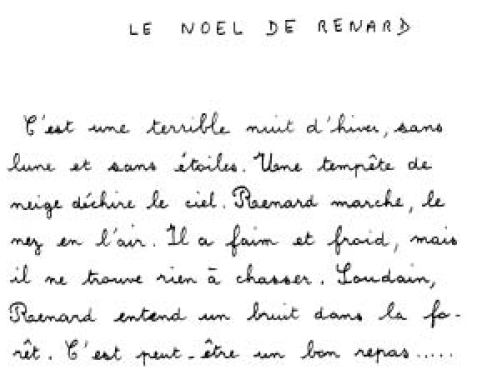 LE NOEL DE RENARD
C'est une terrible nuit d'hiver, sans
lune et sans étoiles. Une tempête de
neige déchire le ciel. Renard marche, le
nez en l'air. Il a faim et froid, mais
il ne trouve rien à chasser. Soudain,
Renard entend un bruit dans la fo-
rêt. C'est peut-être un bon repas.....